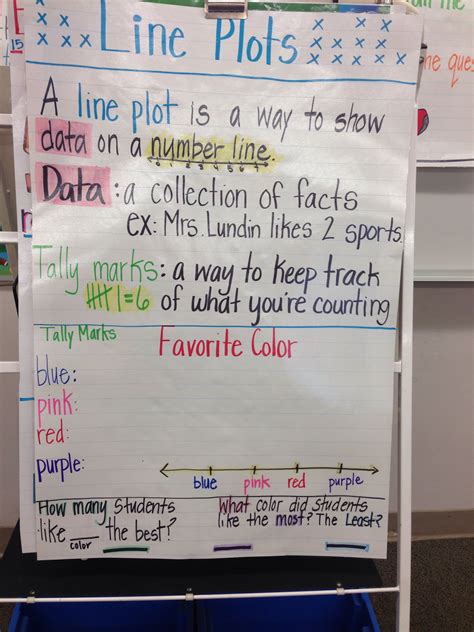 Line Plots
A line plot is a way to show
data on a number line.
Data: a collection of facts
ex: Mrs. Lundin likes 2 sports.
Tally marks: a way to keep track
1=6 of what you're counting
Tally Marks
Favorite Color
blue:
pink:
red:
purple:
blue pink red purple
How many students
like ___ the best?
color
What color did students
like the most? The Least?
he ques